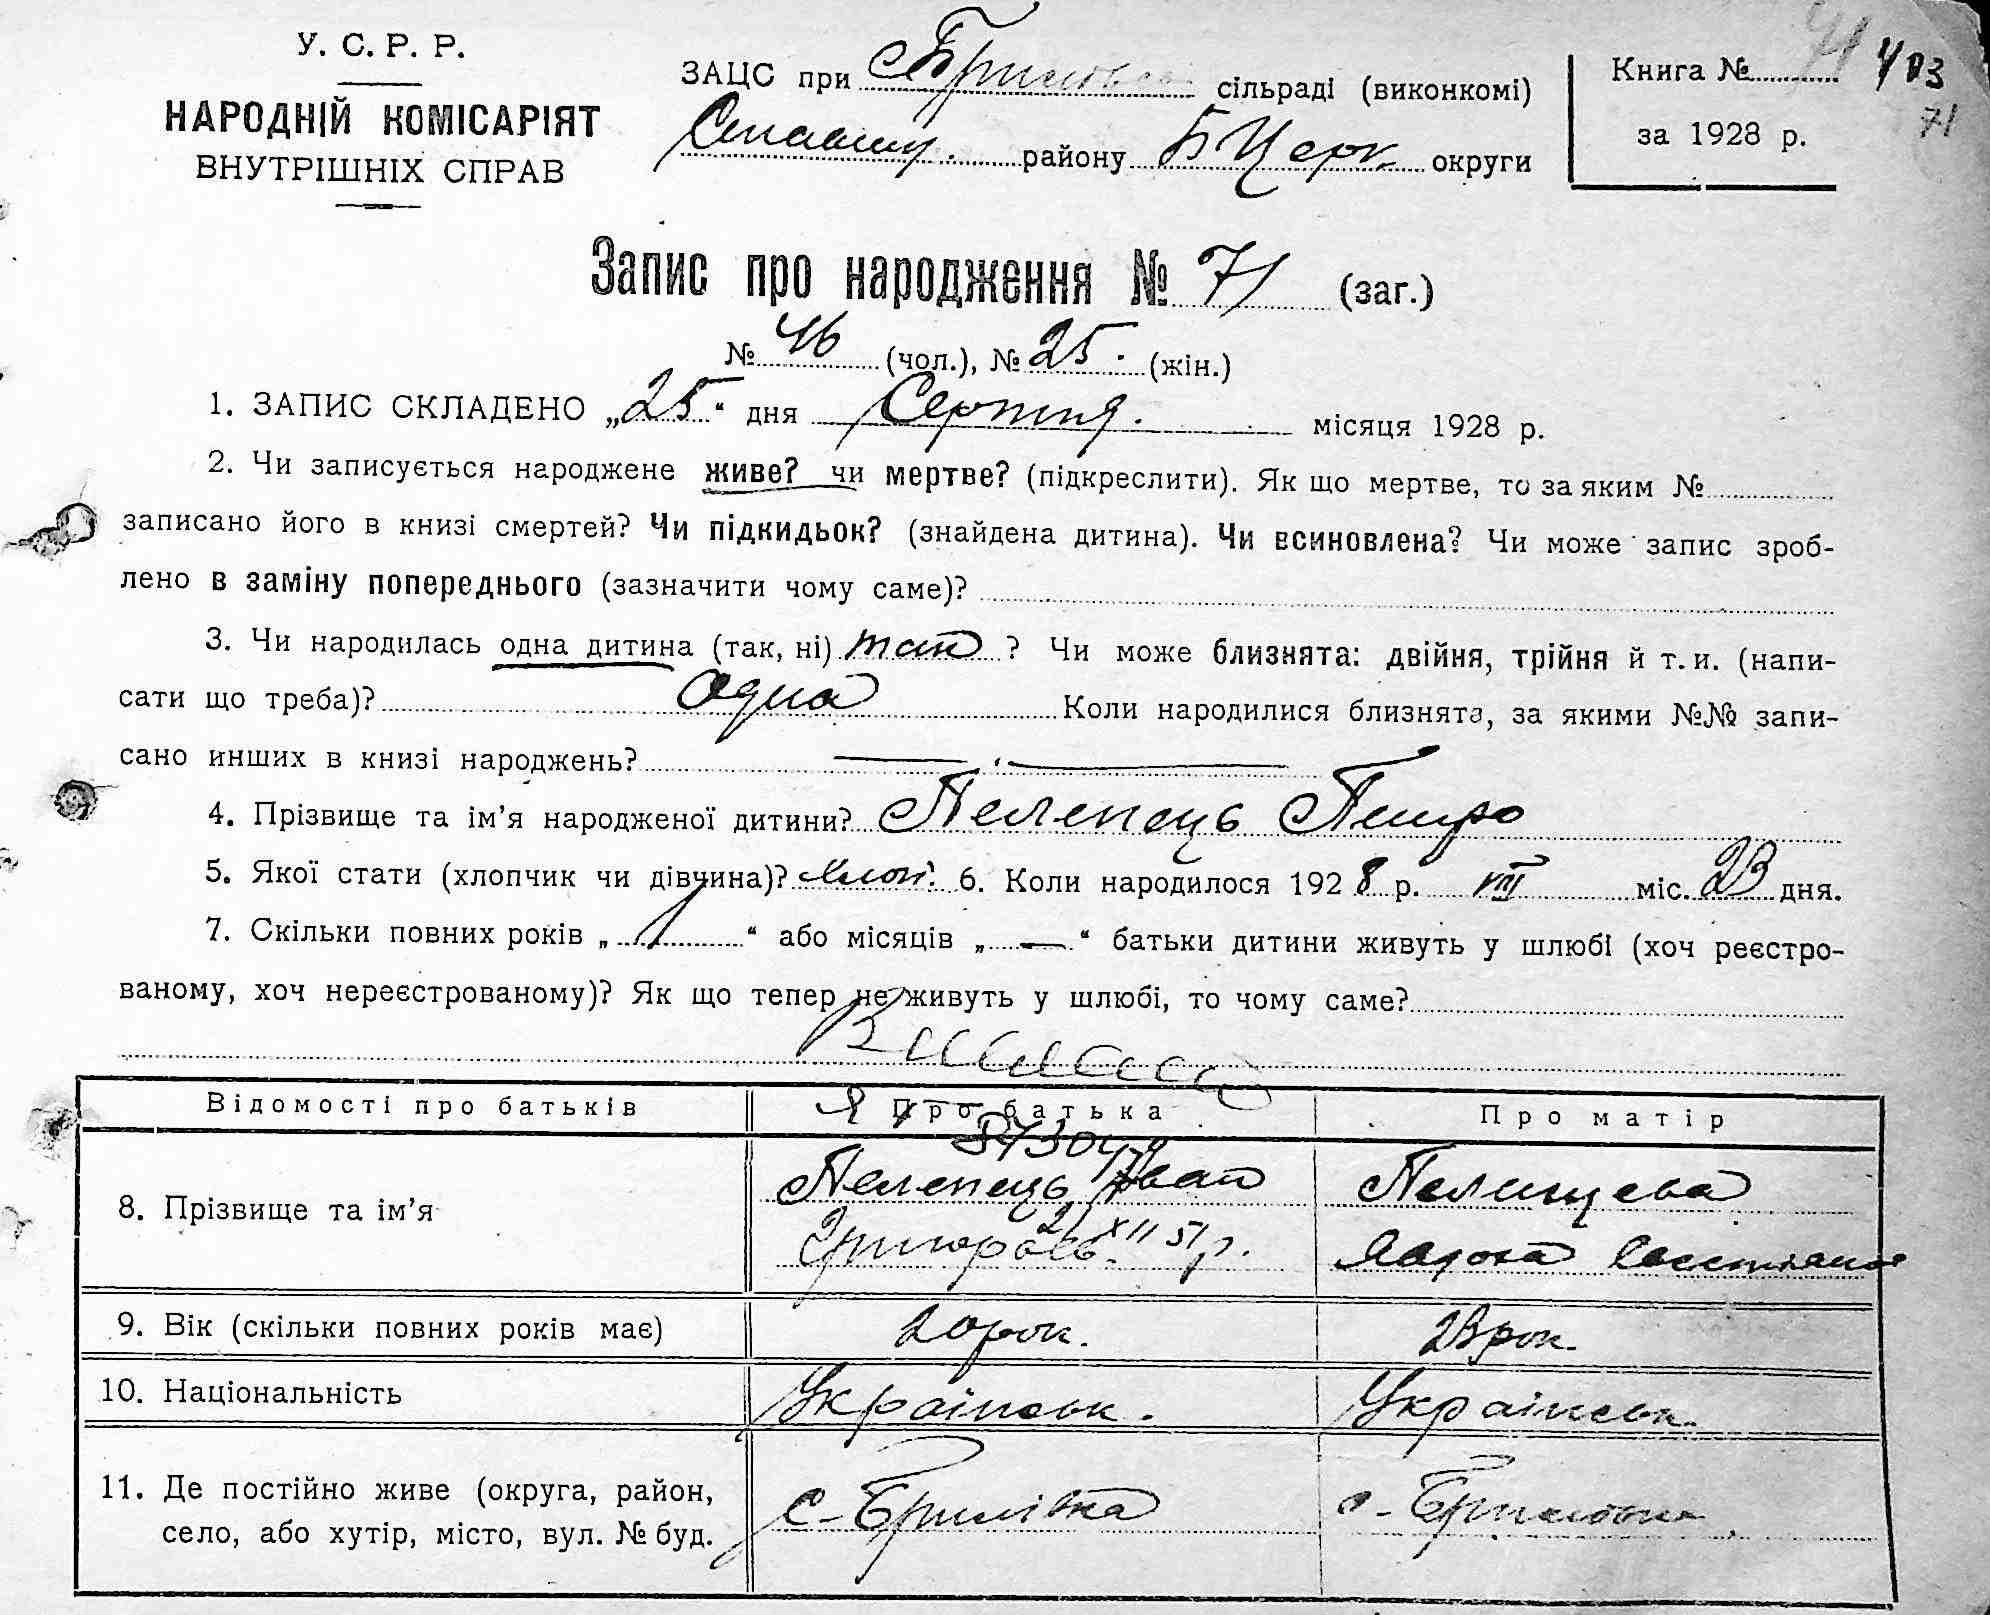 У. С. Р. Р.
НАРОДНІЙ КОМІСАРІЯТ
ВНУТРІШНІХ СПРАВ
ЗАЦС при сільраді (виконкомі)
району Б Церк. округи
Книга № 403
за 1928 р.
71
Запис про народження № 71 (заг.)
№ 46 (чол.), № 25. (жін.)
1. ЗАПИС СКЛАДЕНО „25“ дня Серпня. місяця 1928 р.
2. Чи записується народжене живе? чи мертве? (підкреслити). Як що мертве, то за яким №
записано його в книзі смертей? Чи підкидьок? (знайдена дитина). Чи всиновлена? Чи може запис зроб-
лено в заміну попереднього (зазначити чому саме)?
3. Чи народилась одна дитина (так, ні) так ? Чи може близнята: двійня, трійня й т. и. (напи-
сати що треба)? Одна Коли народилися близнята, за якими №№ запи-
сано инших в книзі народжень?
4. Прізвище та ім’я народженої дитини? Пелепець Петро
5. Якої стати (хлопчик чи дівчина)? хлоп. 6. Коли народилося 1928 р. VIII міс. 23 дня.
7. Скільки повних років „ 1 “ або місяців „ — “ батьки дитини живуть у шлюбі (хоч реєстро-
ваному, хоч нереєстрованому)? Як що тепер не живуть у шлюбі, то чому саме?
Відомості про батьків Про батька Про матір
8. Прізвище та ім’я Пелепець Іван
21 XII 51 р.
9. Вік (скільки повних років має) 20 рок. 23 рок.
10. Національність Українськ. Українськ.
11. Де постійно живе (округа, район, с-Брилівка с-Брилівка
село, або хутір, місто, вул. № буд.